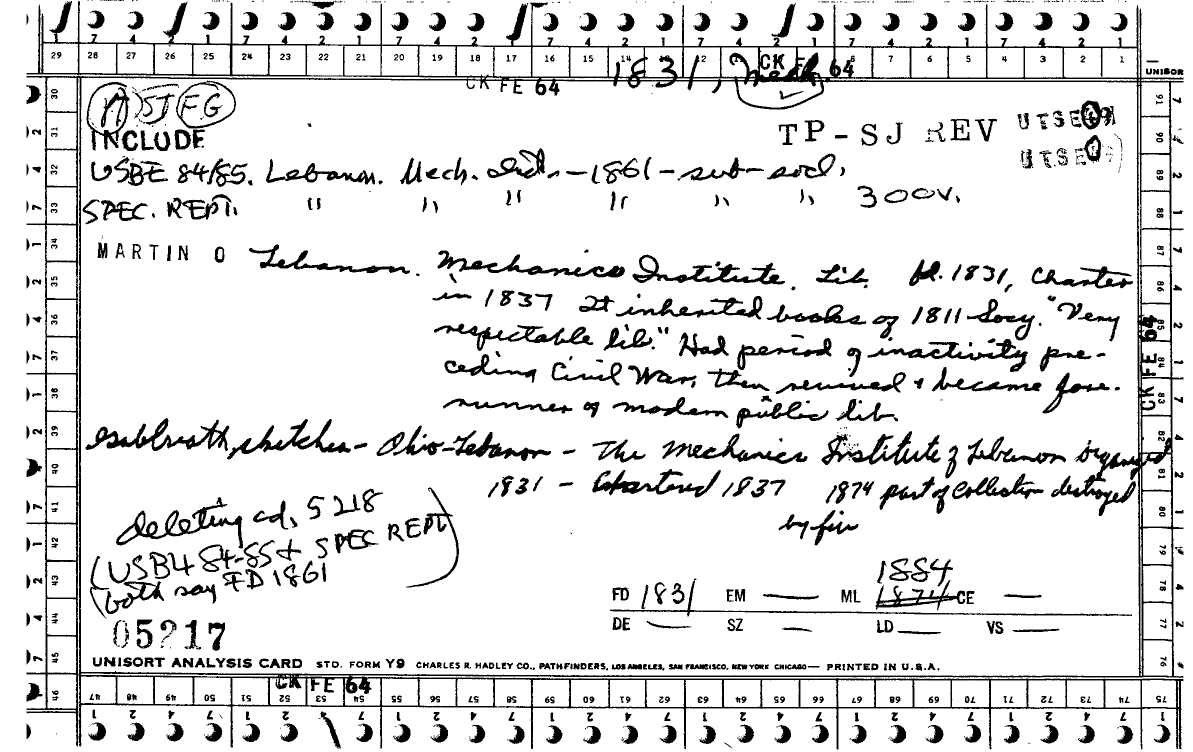 1 7 4 2 1 7 4 2 1 7 4 2 1 7 4 2 1 7 4 2 1 7 4 2 1
29 28 27 26 25 24 23 22 21 20 19 18 17 16 15 14 12 11 8 6 5 4 3 2 1 UNISOR
CK FE 64 1831, Mech. CK FE 64
A SJ FG
INCLUDE TP-SJ REV UTSE
UTSE
USBE 84/85. Lebanon. Mech. Inst. - 1861 - sub-socl.
SPEC. REPT. " " " " " " 300V.
MARTIN O Lebanon. Mechanics Institute. Lib. fd. 1831, Charter
in 1837 It inherited books of 1811 Socy. "Very
respectable lib." Had period of inactivity pre-
ceding Civil War, then revived & became fore-
runner of modern public lib.
sketches - Ohio-Lebanon - The Mechanics Institute of Lebanon organized
1831 - Chartered 1837 1874 part of collection destroyed
by fire
deleting cd. 5218
(USB4 84-85 & SPEC REPT
both say FD 1861)
1884
FD 1831 EM — ML 1874 CE —
DE — SZ — LD — VS —
05217
UNISORT ANALYSIS CARD STD. FORM Y9 CHARLES R. HADLEY CO., PATHFINDERS, LOS ANGELES, SAN FRANCISCO, NEW YORK CHICAGO — PRINTED IN U.S.A.
CK FE 64
47 48 49 50 51 52 53 54 55 56 57 58 59 60 61 62 63 64 65 66 67 68 69 70 71 72 73 74 75
1 2 4 7 1 2 4 7 1 2 4 7 1 2 4 7 1 2 4 7 1 2 4 7 1
30 31 32 33 34 35 36 37 38 39 40 41 42 43 44 45 46
91 90 89 88 87 86 85 84 83 82 81 80 79 78 77 76
CK FE 64